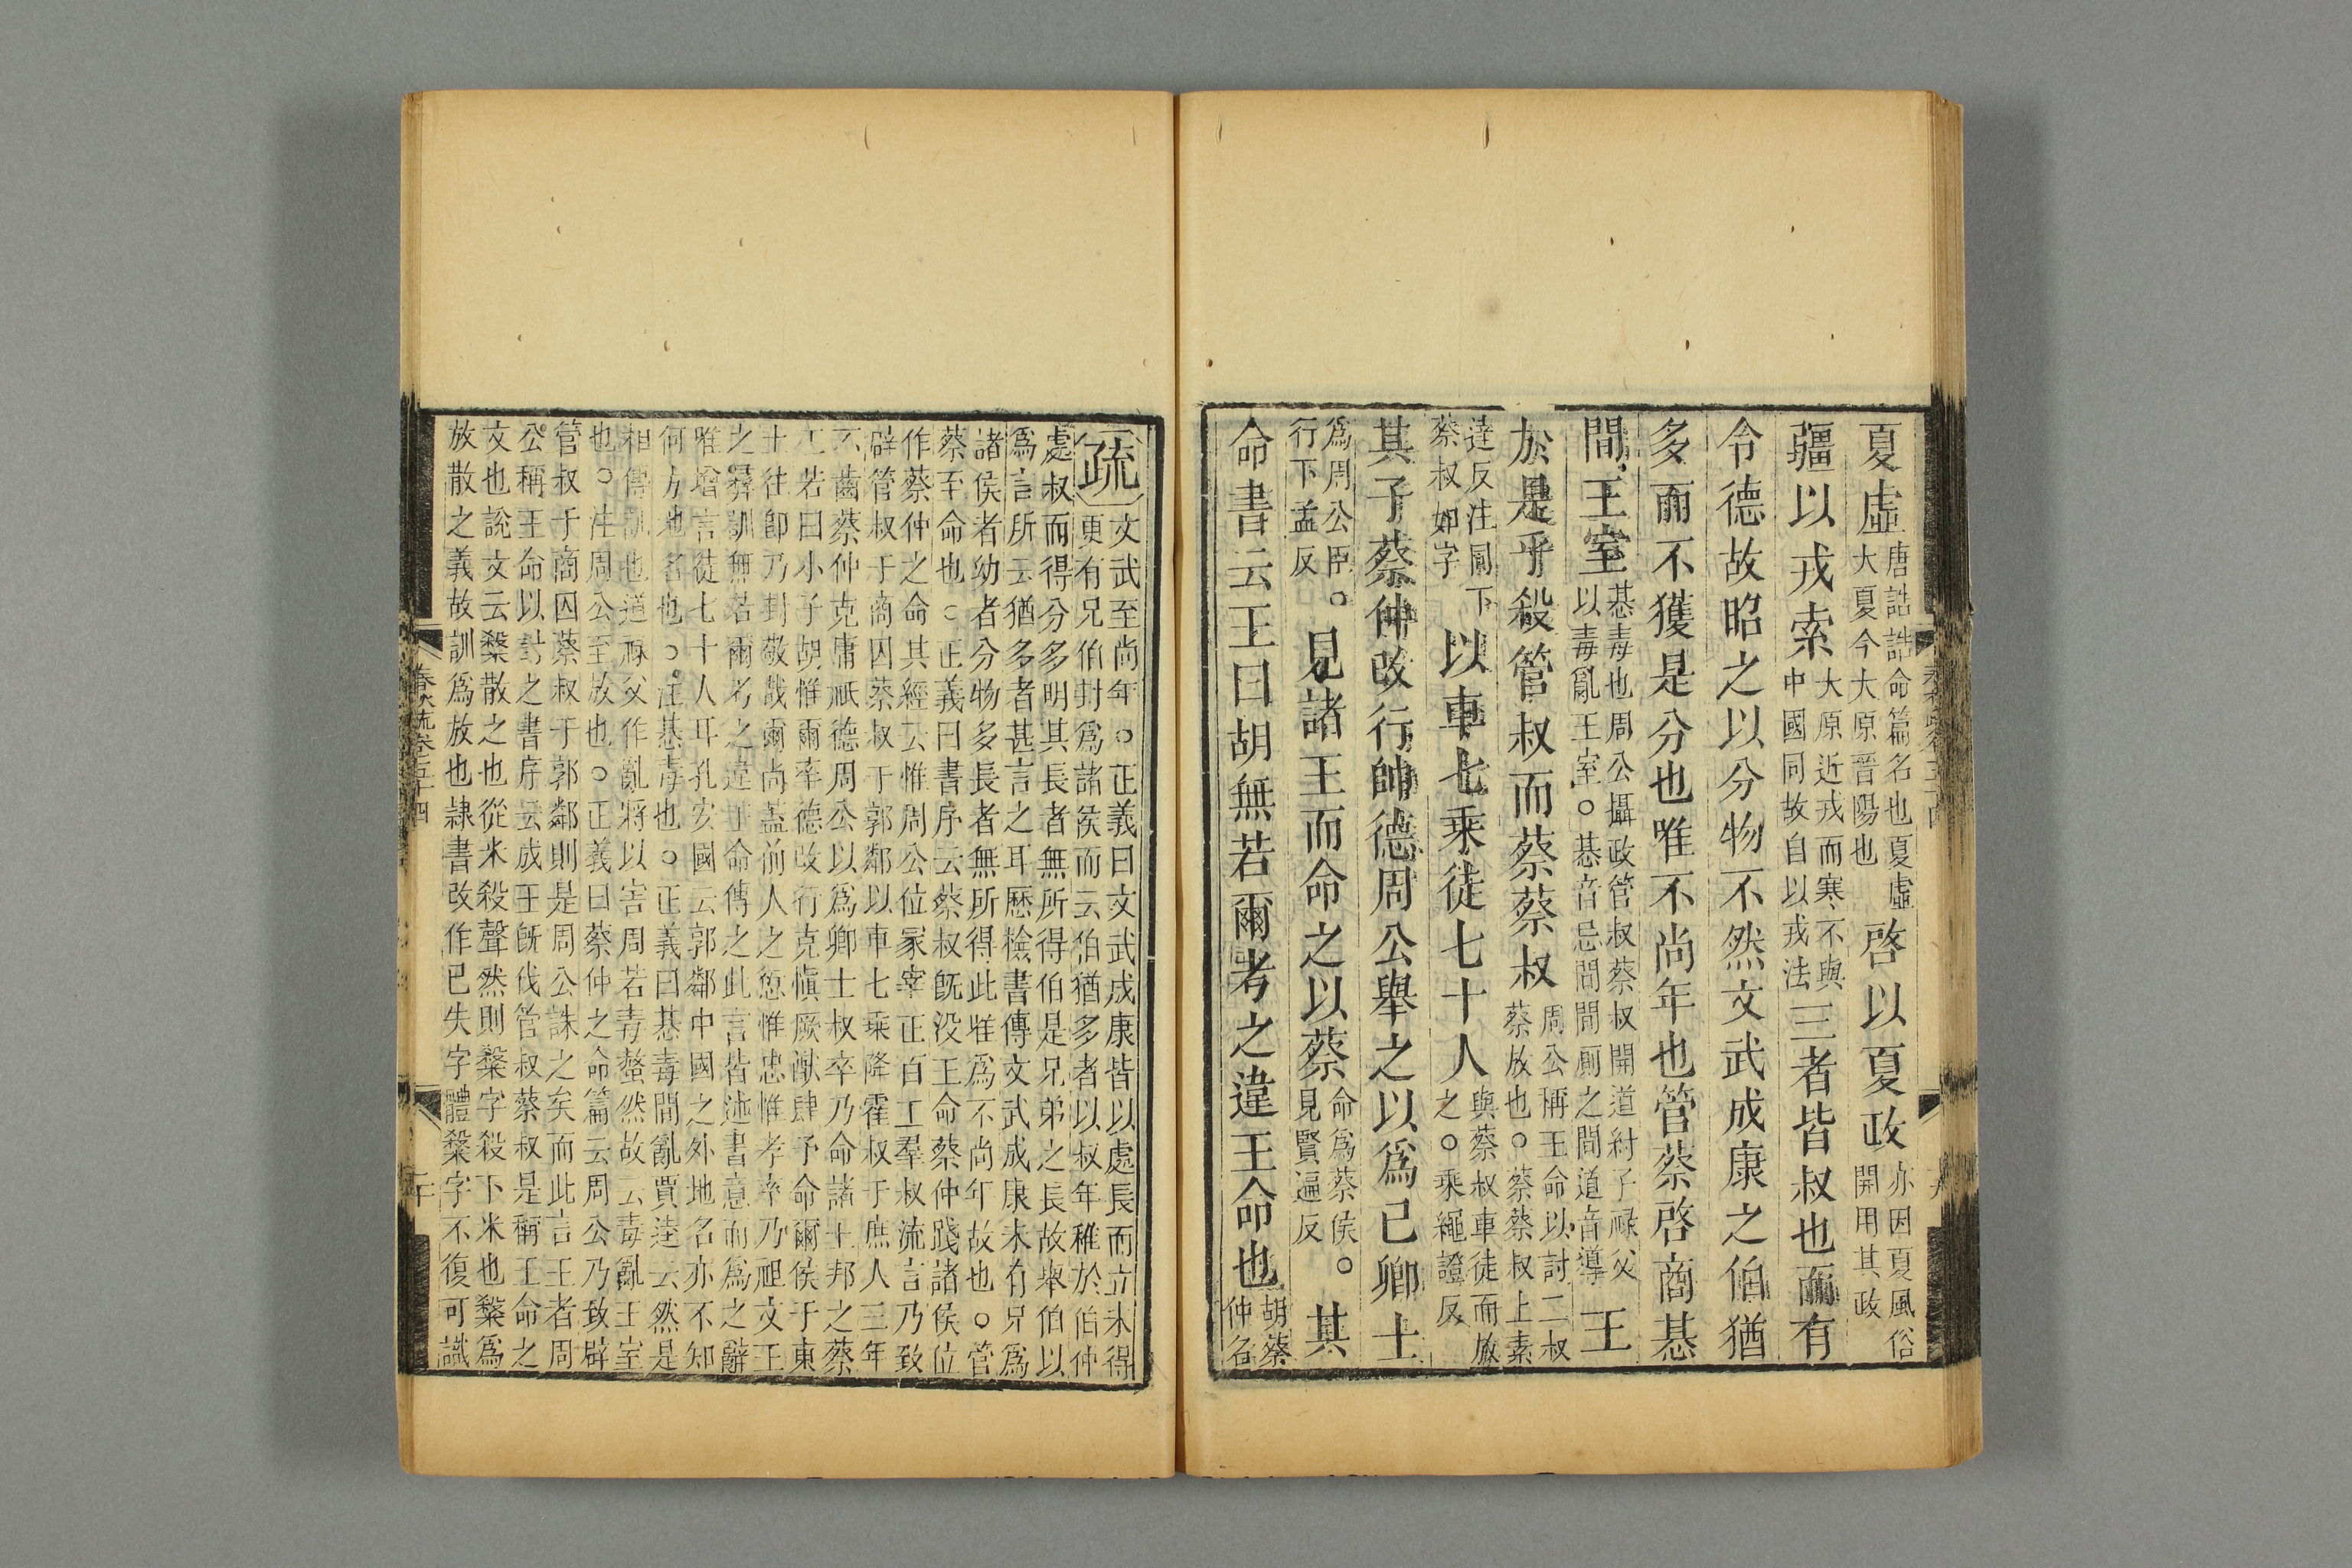 夏虛唐誥誥命篇名也夏虛大夏今大原晉陽也啓以夏政亦因夏風俗開用其政
疆以戎索大原近戎而寒不與中國同故自以戎法三者皆叔也而有
令德故昭之以分物不然文武成康之伯猶
多而不獲是分也唯不尚年也管蔡啓商惎
間王室惎毒也周公攝政管叔蔡叔開道紂子祿父以毒亂王室○惎音忌間間厠之間道音導王
於是乎殺管叔而蔡蔡叔周公稱王命以討二叔蔡放也○蔡蔡叔上素
達反注同下蔡叔如字以車七乘徒七十人與蔡叔車徒而放之○乘繩證反
其子蔡仲改行帥德周公舉之以爲己卿士
爲周公臣○行下孟反見諸王而命之以蔡命爲蔡侯○見賢遍反其
命書云王曰胡無若爾考之違王命也胡蔡仲名
疏文武至尚年○正義曰文武成康皆以處長而立未得
更有兄伯封爲諸侯而云伯猶多者以叔年稚於伯仲
處叔而得分多明其長者無所得伯是兄弟之長故舉伯以
爲言所云猶多者甚言之耳歷檢書傳文武成康未有兄爲
諸侯者幼者分物多長者無所得此唯爲不尚年故也○管
蔡至命也○正義曰書序云蔡叔旣没王命蔡仲踐諸侯位
作蔡仲之命其經云惟周公位冢宰正百工羣叔流言乃致
辟管叔于商囚蔡叔于郭鄰以車七乘降霍叔于庶人三年
不齒蔡仲克庸祇德周公以爲卿士叔卒乃命諸王邦之蔡
王若曰小子胡惟爾率德改行克愼厥猷肆予命爾侯于東
土往卽乃封敬哉爾尚蓋前人之愆惟忠惟孝率乃祖文王
之彝訓無若爾考之違王命傳之此言皆述書意而爲之辭
唯增言徒七十人耳孔安國云郭鄰中國之外地名亦不知
何方地名也○注惎毒也○正義曰惎毒間亂賈逵云然是
相傳訓也道祿父作亂將以害周若毒螫然故云毒亂王室
也○注周公至放也○正義曰蔡仲之命篇云周公乃致辟
管叔于商囚蔡叔于郭鄰則是周公誅之矣而此言王者周
公稱王命以討之書序云成王旣伐管叔蔡叔是稱王命之
文也說文云糳散之也從米殺聲然則糳字殺下米也糳爲
放散之義故訓爲放也隷書改作已失字體糳字不復可識
春秋疏卷五十四
二十